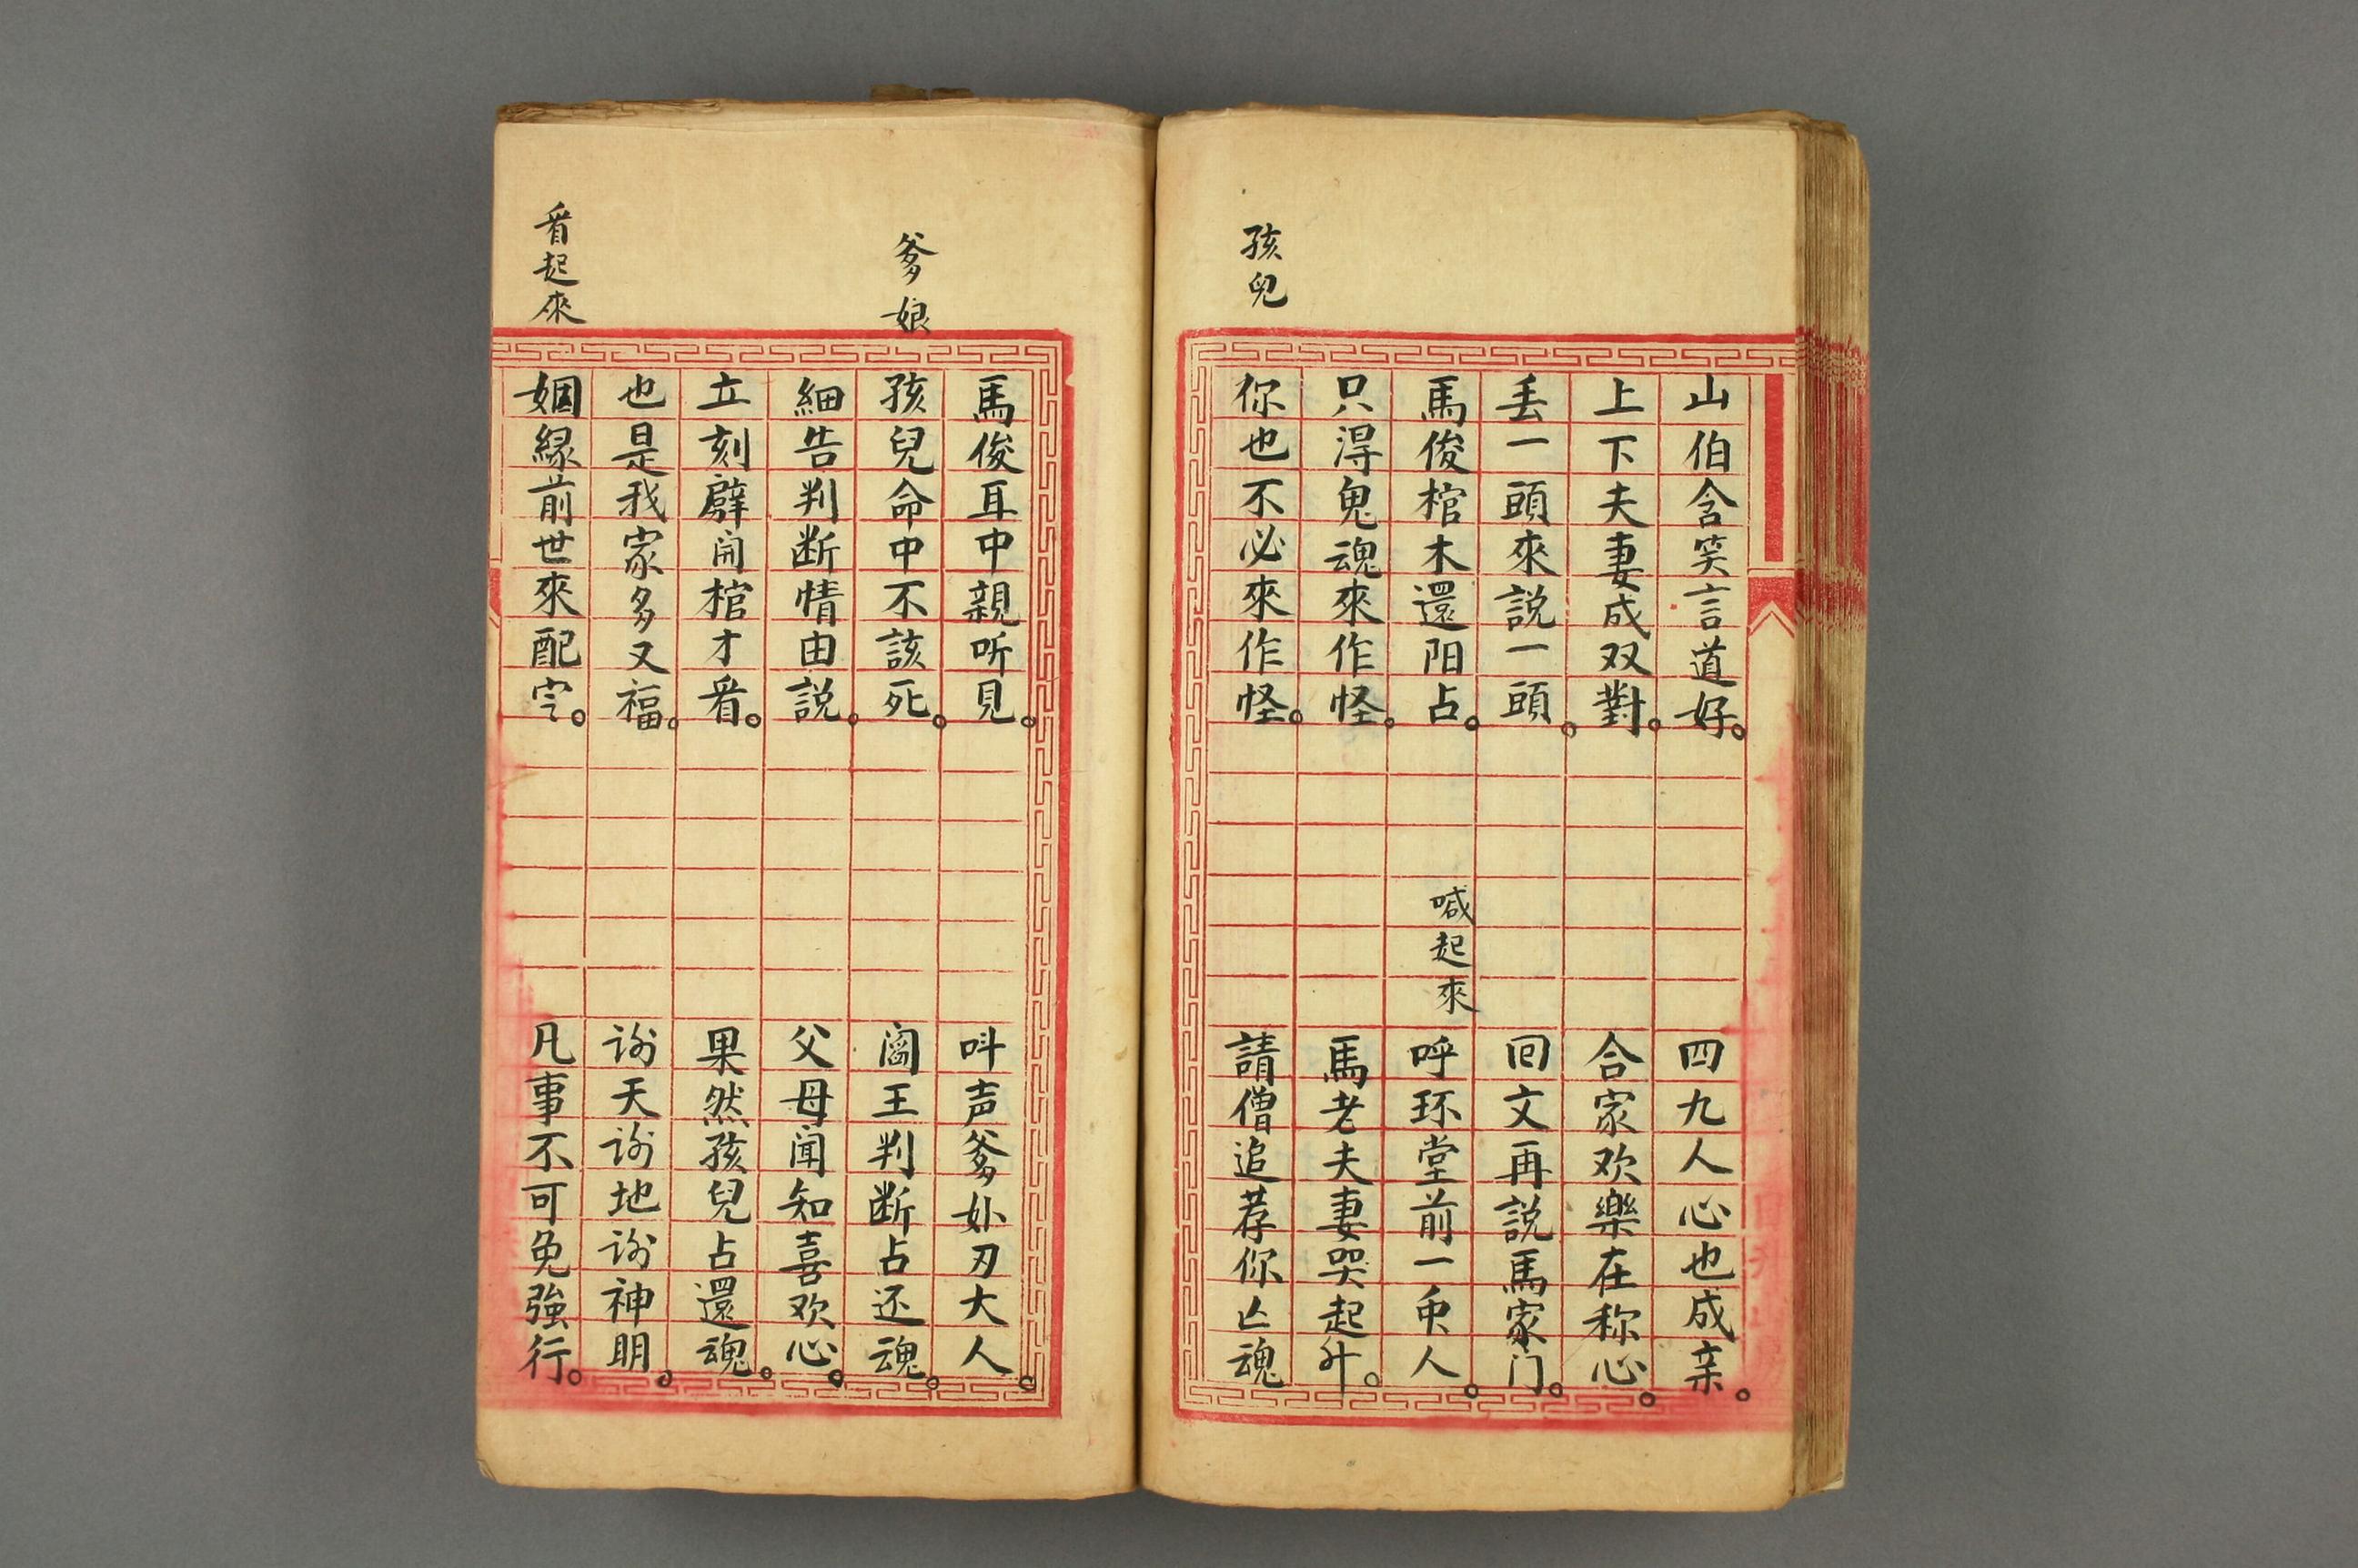 山伯含笑言道好。
四九人心也成亲。
上下夫妻成双對。
合家欢樂在称心。
丢一頭來説一頭。
回文再説馬家门。
馬俊棺木還阳占。
喊起來
呼环堂前一 人。
只淂鬼魂來作怪。
馬老夫妻哭起升。
孩兒
你也不必來作怪。
請僧追荐你亡魂
馬俊耳中親听見。
呌声爹 大人。
爹娘
孩兒命中不該死。
阎王判断占还魂。
細告判断情由説。
父母闻知喜欢心。
立刻劈開棺才看。
果然孩兒占還魂。
也是我家多又福。
谢天谢地谢神明。
看起來
姻緣前世來配定。
凡事不可免強行。